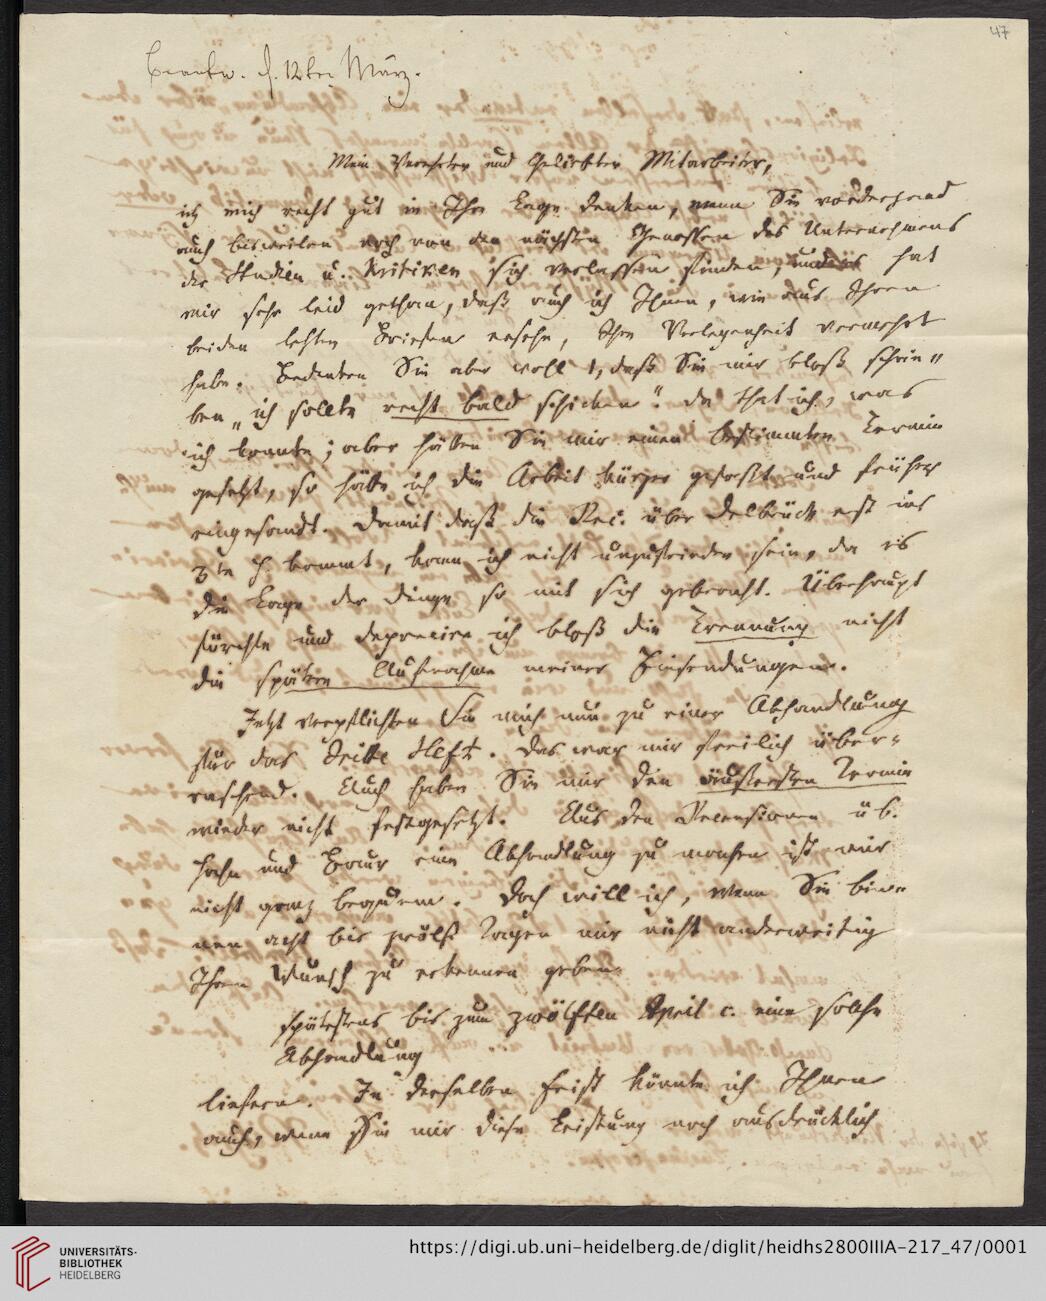 47
Beantw. d. 12ten März.
Mein Verehrter und Geliebter Mitarbeiter,
ich mich recht gut in Ihre Lage denken, wenn Sie vorderhand
auch bisweilen noch von den nächsten Genossen des Unternehmens
der Studien u. Kritiken sich verlassen finden, und es hat
mir sehr leid gethan, daß auch ich Ihnen, wie aus Ihren
beiden letzten Briefen ersehe, Ihre Verlegenheit vermehrt
habe. Bedenken Sie aber wohl, daß Sie mir bloß schrie-
ben „ich sollte recht bald schicken“. da that ich, was
ich konnte; aber hätten Sie mir einen bestimmten Termin
gesetzt, so hätte ich die Arbeit kürzer gefaßt und früher
eingesandt. Damit daß die Rec. über Delbrück erst ins
3te H. kommt, kann ich nicht unzufrieden sein, da es
die Lage der Dinge so mit sich gebracht. Überhaupt
fürchte und deprecire ich bloß die Trennung nicht
die spätere Aufnahme meiner Einsendungen.
Jetzt verpflichten Sie mich nun zu einer Abhandlung
für das dritte Heft. Das war mir freilich über-
raschend. Auch haben Sie mir den äußersten Termin
wieder nicht festgesetzt. Aus den Recensionen üb.
Hahn und Baur eine Abhandlung zu machen ist mir
nicht ganz bequem. Doch will ich, wenn Sie bin-
nen acht bis zwölf Tagen mir nicht anderweitig
Ihren Wunsch zu erkennen geben
spätestens bis zum zwölften April c. eine solche
Abhandlung
liefern. In derselben Frist könnte ich Ihnen
auch, wenn Sie mir diese Leistung noch ausdrücklich
UNIVERSITÄTS-
BIBLIOTHEK
HEIDELBERG
https://digi.ub.uni-heidelberg.de/diglit/heidhs2800IIIA-217_47/0001